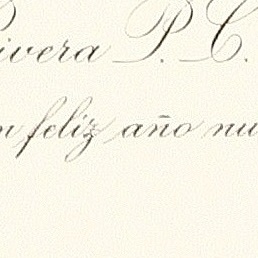 ivera P. C.
feliz año nu